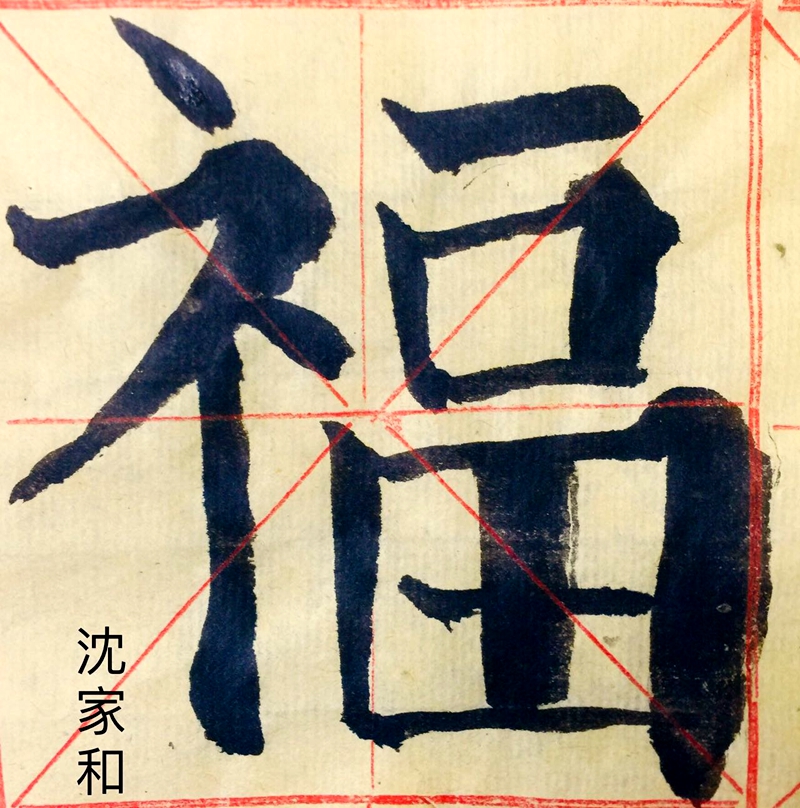 福
沈家和